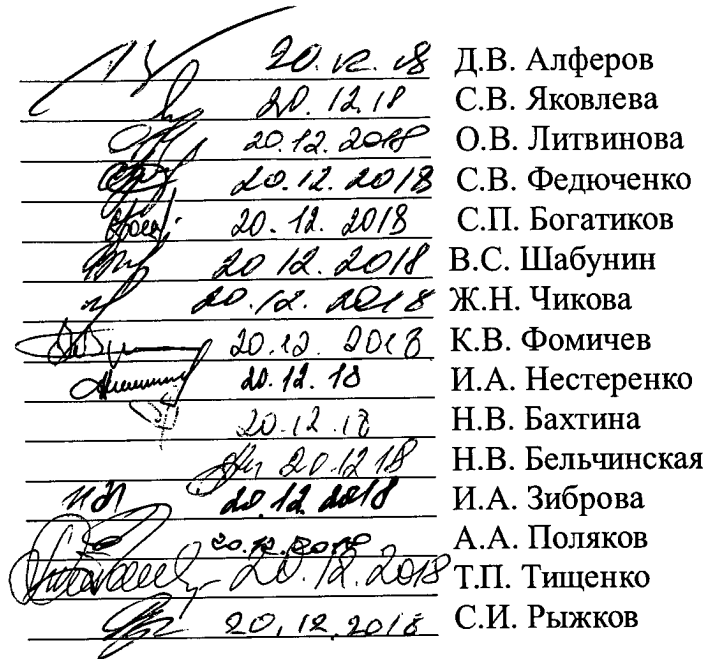 20.12.18 Д.В. Алферов
20.12.18 С.В. Яковлева
20.12.2018 О.В. Литвинова
20.12.2018 С.В. Федюченко
20.12.2018 С.П. Богатиков
20.12.2018 В.С. Шабунин
20.12.2018 Ж.Н. Чикова
20.12.2018 К.В. Фомичев
20.12.18 И.А. Нестеренко
20.12.18 Н.В. Бахтина
20.12.18 Н.В. Бельчинская
20.12.2018 И.А. Зиброва
20.12.2018 А.А. Поляков
20.12.2018 Т.П. Тищенко
20.12.2018 С.И. Рыжков